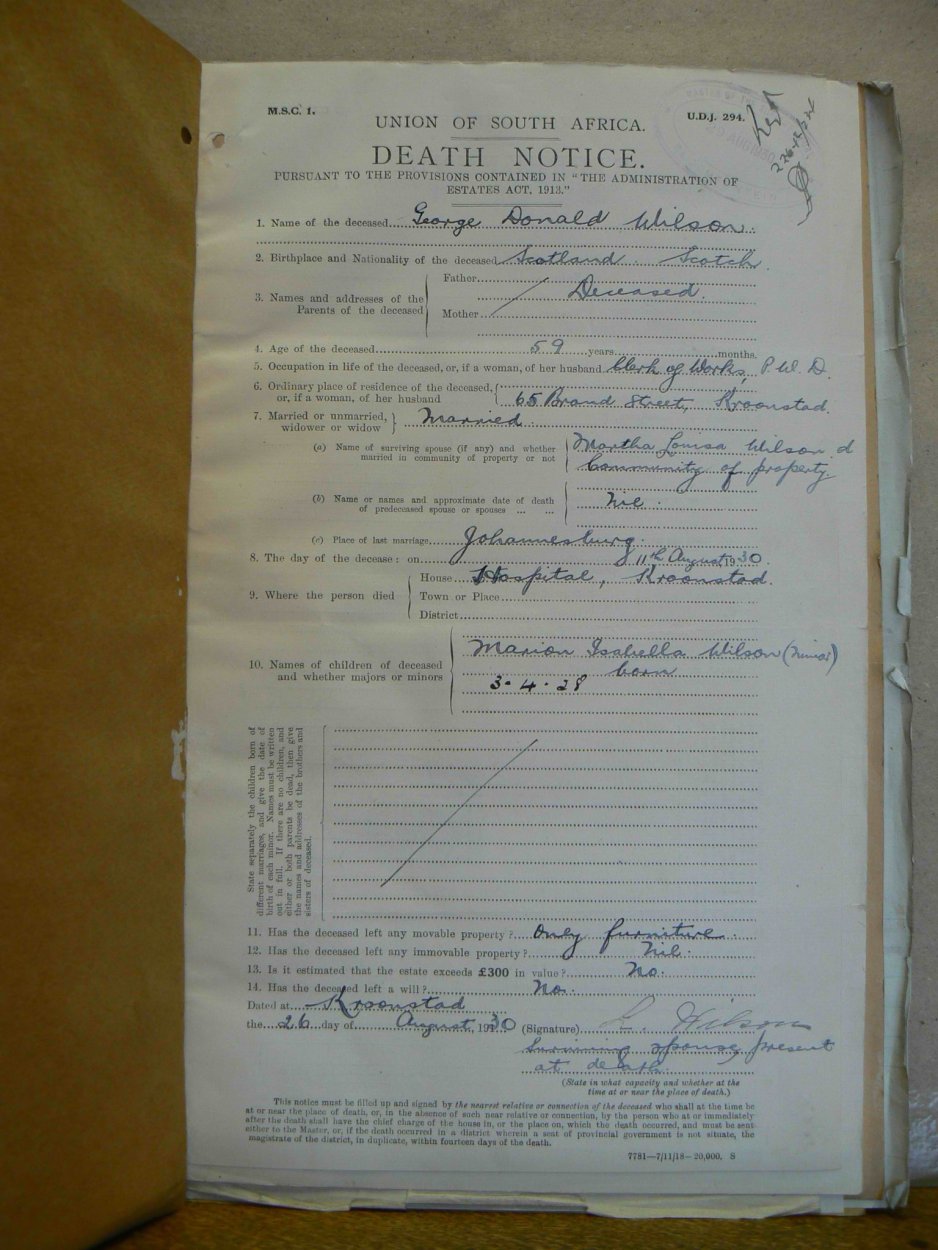 M.S.C. 1.
U.D.J. 294.
UNION OF SOUTH AFRICA.
DEATH NOTICE.
PURSUANT TO THE PROVISIONS CONTAINED IN "THE ADMINISTRATION OF
ESTATES ACT, 1913."
1. Name of the deceased George Donald Wilson
2. Birthplace and Nationality of the deceased Scotland. Scotch.
3. Names and addresses of the
Parents of the deceased
Father
Deceased.
Mother
4. Age of the deceased 59 years months.
5. Occupation in life of the deceased, or, if a woman, of her husband Clerk of Works, P.W.D.
6. Ordinary place of residence of the deceased,
or, if a woman, of her husband
65 Brand Street, Kroonstad.
7. Married or unmarried,
widower or widow
Married.
(a) Name of surviving spouse (if any) and whether
married in community of property or not
Martha Louisa Wilson
Community of property.
(b) Name or names and approximate date of death
of predeceased spouse or spouses ... ...
Nil.
(c) Place of last marriage Johannesburg.
8. The day of the decease: on 11th August 1930.
9. Where the person died
House Hospital, Kroonstad.
Town or Place
District
10. Names of children of deceased
and whether majors or minors
Marion Isabella Wilson (minor)
born
3-4-28
State separately the children born of
different marriages, and give the date of
birth of each minor. Names must be written
out in full. If there are no children, and
either or both parents be dead, then give
the names and addresses of the brothers and
sisters of deceased.
11. Has the deceased left any movable property? Only furniture.
12. Has the deceased left any immovable property? Nil.
13. Is it estimated that the estate exceeds £300 in value? No.
14. Has the deceased left a will? No.
Dated at Kroonstad
the 26 day of August, 1930 (Signature) L. Wilson
Surviving spouse, present
at death.
(State in what capacity and whether at the
time at or near the place of death.)
This notice must be filled up and signed by the nearest relative or connection of the deceased who shall at the time be
at or near the place of death, or, in the absence of such near relative or connection, by the person who at or immediately
after the death shall have the chief charge of the house in, or the place on, which the death occurred, and must be sent
either to the Master, or, if the death occurred in a district wherein a seat of provincial government is not situate, the
magistrate of the district, in duplicate, within fourteen days of the death.
7781—7/11/18—20,000. S